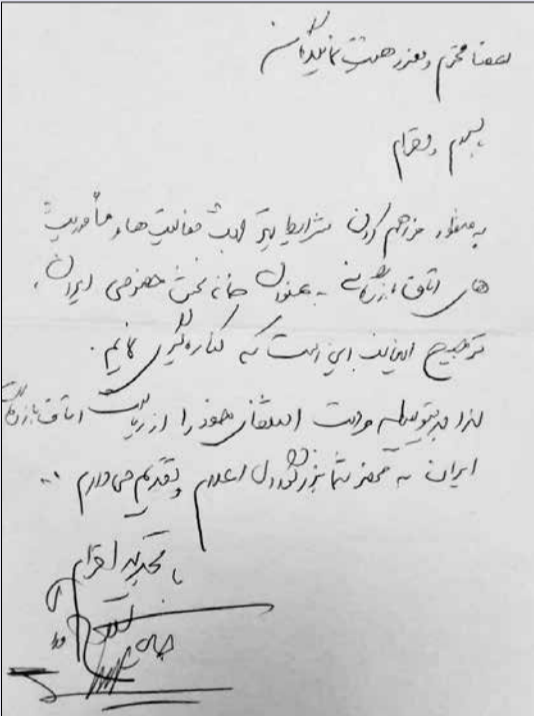 اعضا محترم و معزز هیئت نمایندگان
با سلام و احترام
به منظور فراهم کردن شرایط بهتر جهت فعالیت ها و مأموریت
های اتاق بازرگانی به عنوان خانه بخش خصوصی ایران،
ترجیح اینجانب این است که کناره گیری نمایم.
لذا بدینوسیله مراتب استعفای خود را از ریاست اتاق بازرگانی
ایران به محضر شما بزرگواران اعلام و تقدیم می دارم ..
با تجدید احترام